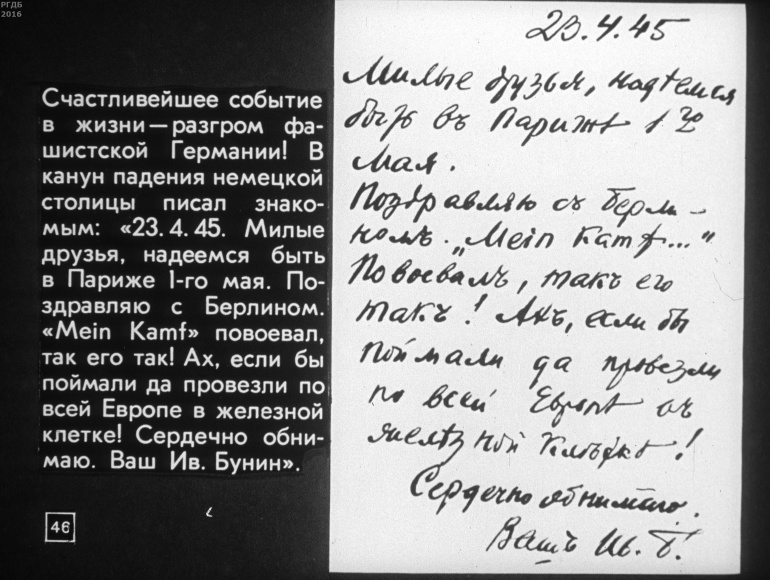 РГДБ
2016
Счастливейшее событие
в жизни — разгром фа-
шистской Германии! В
канун падения немецкой
столицы писал знако-
мым: «23. 4. 45. Милые
друзья, надеемся быть
в Париже 1-го мая. По-
здравляю с Берлином.
«Mein Kamf» повоевал,
так его так! Ах, если бы
поймали да провезли по
всей Европе в железной
клетке! Сердечно обни-
маю. Ваш Ив. Бунин».
46
23.4.45
Милые друзья, надѣемся
быть въ Парижѣ 1го
мая.
Поздравляю съ Берли-
номъ. „Mein Kamf...“
Повоевалъ, такъ его
такъ! Ахъ, если бы
поймали да провезли
по всей Европѣ въ
желѣзной клѣткѣ!
Сердечно обнимаю.
Вашъ Ив. Б.